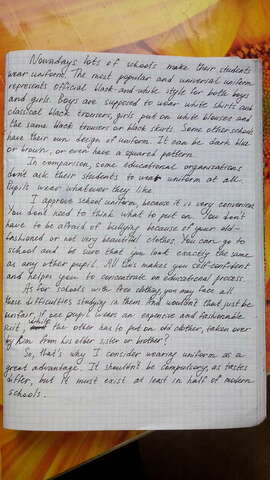 Nowadays lots of schools make their students
wear uniform. The most popular and universal uniform
represents official black-and-white style for both boys
and girls. Boys are supposed to wear white shirts and
classical black trousers, girls put on white blouses and
the same black trousers or black skirts. Some other schools
have their own design of uniform. It can be dark blue
or brown, or even have a squared pattern.
In comparison, some educational organisations
don't ask their students to wear uniform at all.
Pupils wear whatever they like.
I approve school uniform, because it is very convenient.
You don't need to think what to put on. You don't
have to be afraid of bullying because of your old-
fashioned or not very beautiful clothes. You can go to
school and be sure that you look exactly the same
as any other pupil. All this makes you self-confident
and helps you to concentrate on educational process.
As for schools with free clothing, you may face all
these difficulties studying in them. And wouldn't that just be
unfair, if one pupil wears an expensive and fashionable
suit, while the other has to put on old clothes, taken over
by him from his elder sister or brother?
So, that's why I consider wearing uniform as a
great advantage. It shouldn't be compulsory, as tastes
differ, but it must exist at least in half of modern
schools.